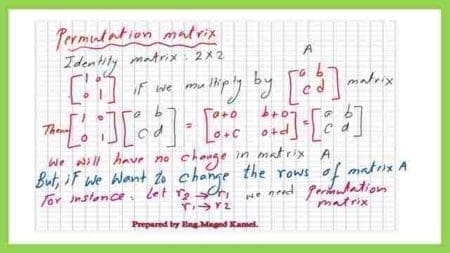 Permutation matrix
Identity matrix : 2x2 A
[1 0
0 1] if we multiply by [a b
c d] matrix
Then [1 0
0 1] [a b
c d] = [a+0 b+0
0+c 0+d] = [a b
c d]
we will have no change in matrix A
But, if we want to change the rows of matrix A
For instance. Let r2 → r1 we need Permutation
r1 → r2 matrix
Prepared by Eng.Maged Kamel.